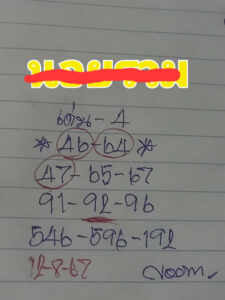 เด่น-4
* 46-64 *
47-65-67
91-92-96
546-596-192
12-8-67